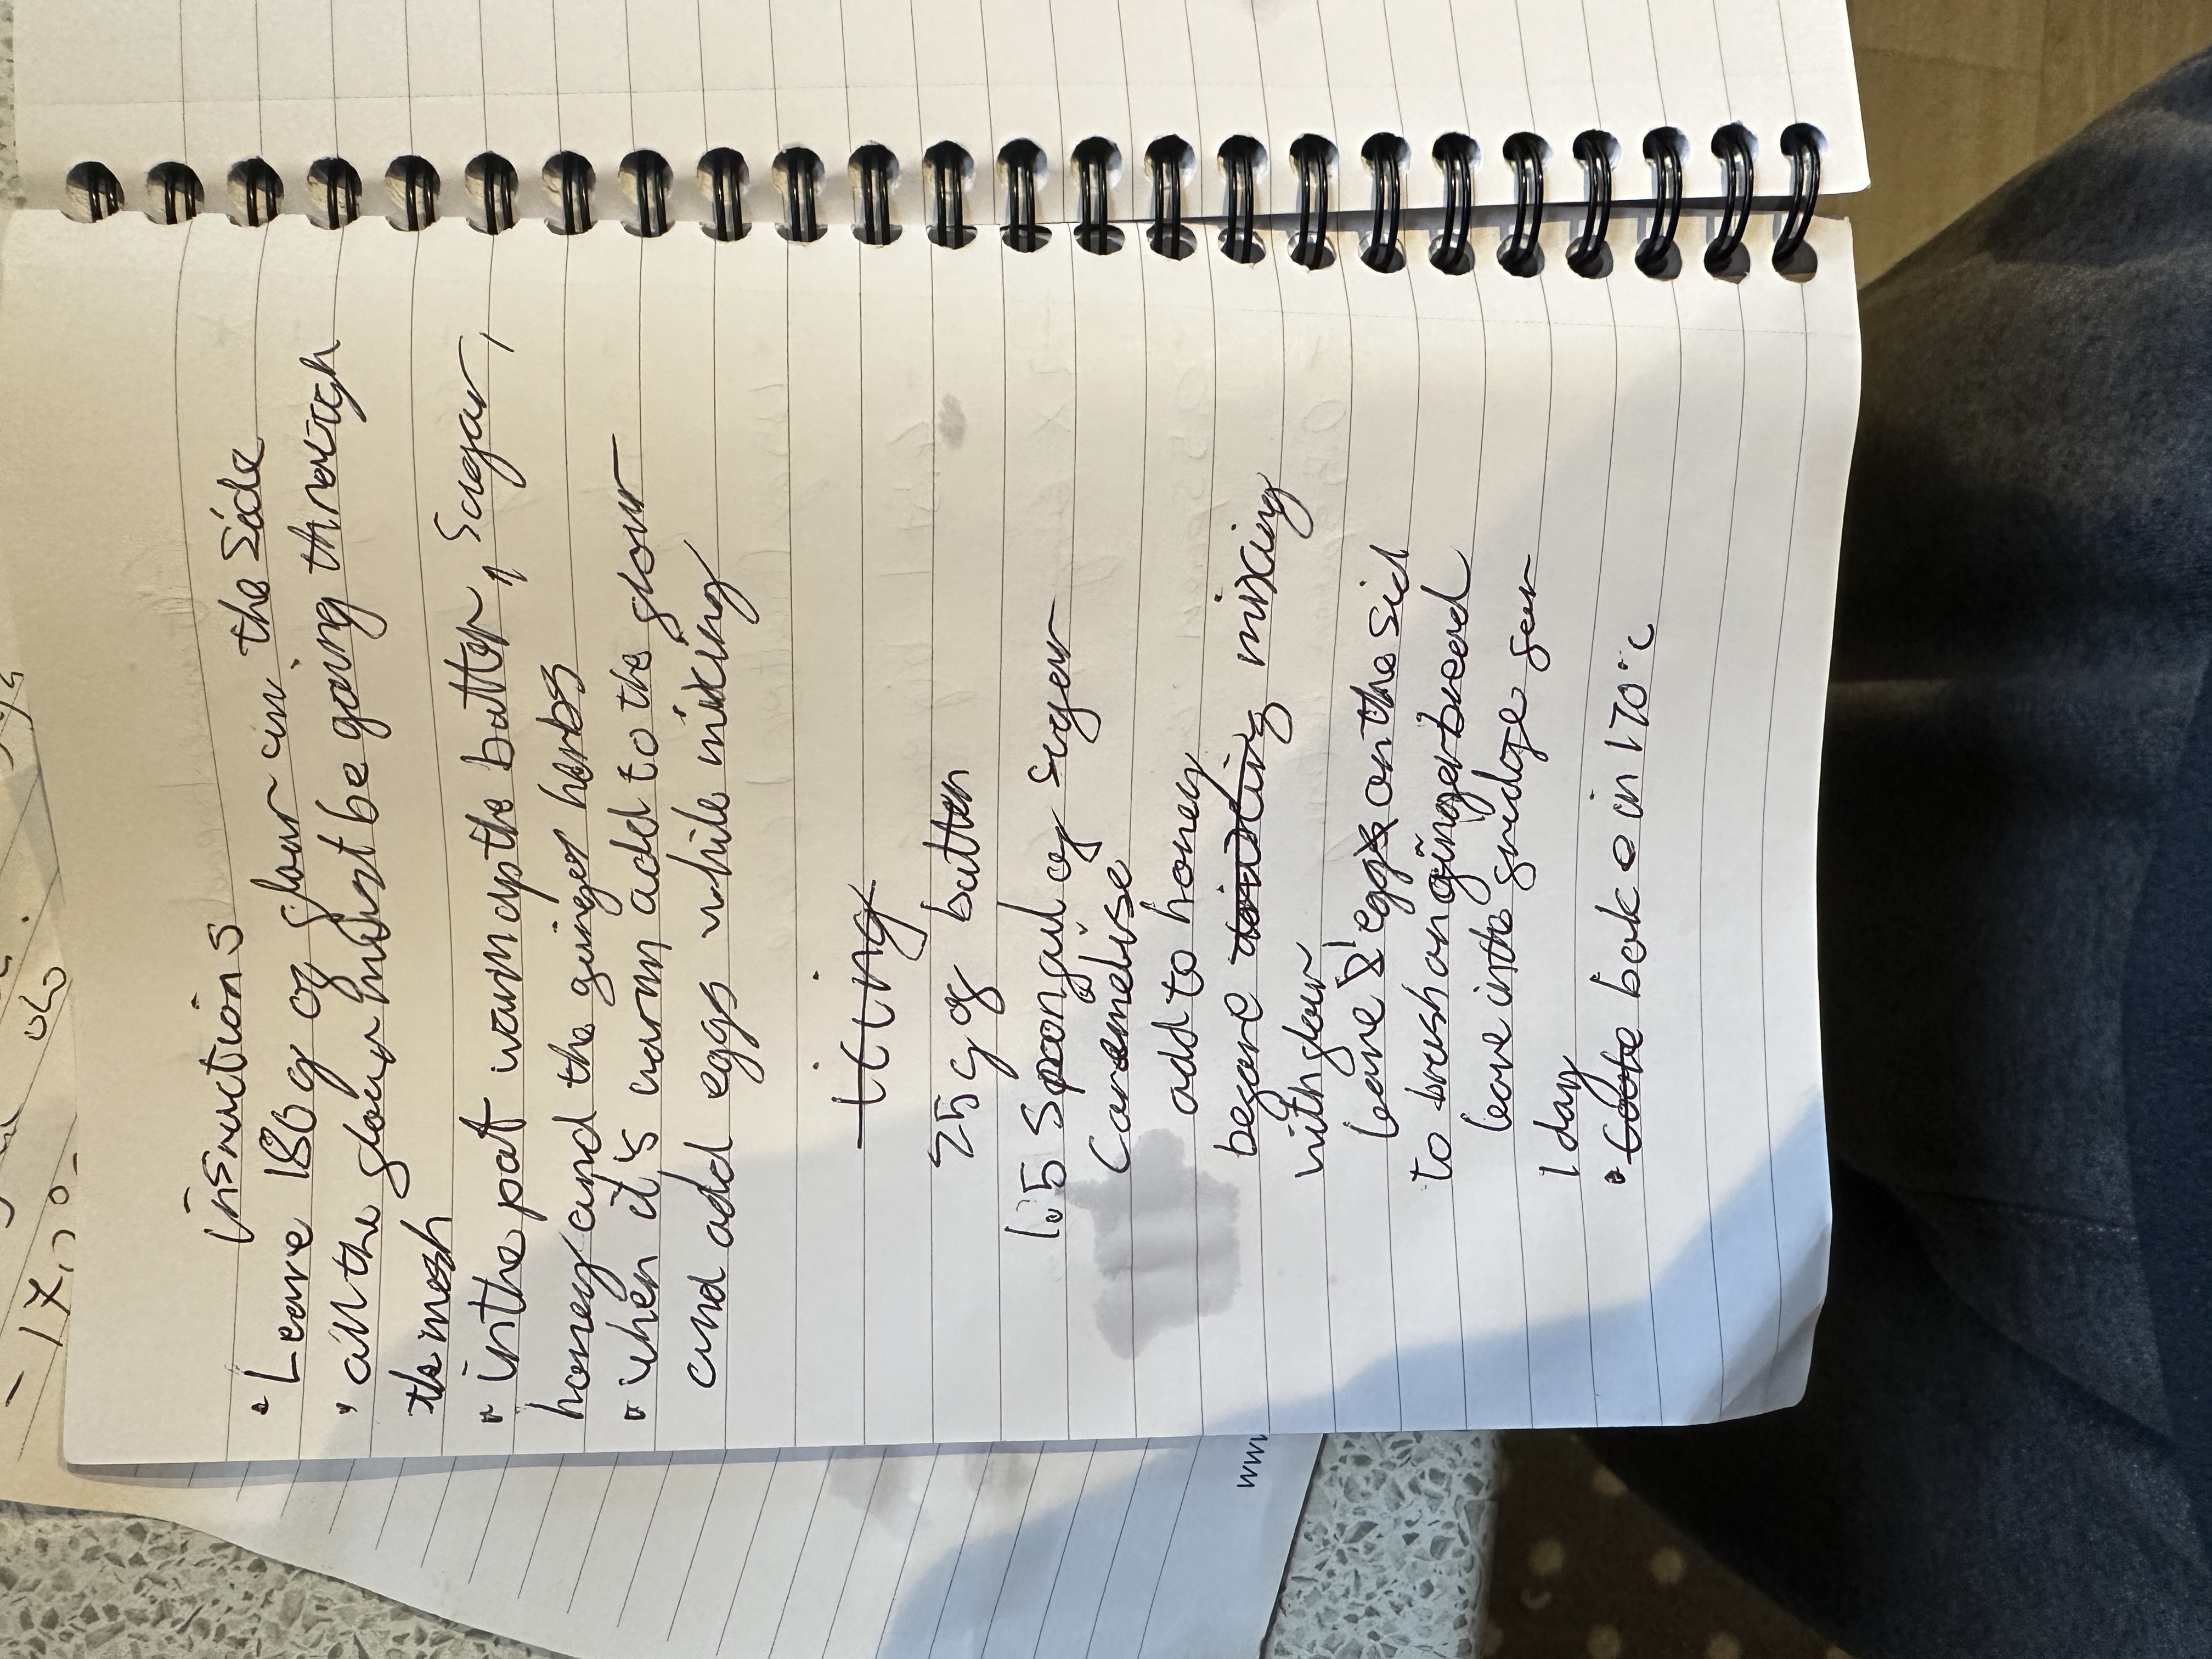 insructions
• Leave 180 g of flour in the side
• all the flour must be going through
the mesh
• in the pot warm up the butter, sugar,
honey and the ginger herbs
• when it's warm add to the flour
and add eggs while mixing
iting
25 g of butter
1.5 spoonful of suger
caramelise
add to honey
before mixing
with flour
leave 1 egg on the sid
to brush on gingerbread
leave in the fridge for
1 day
• bake in 170°c
- 17.
www